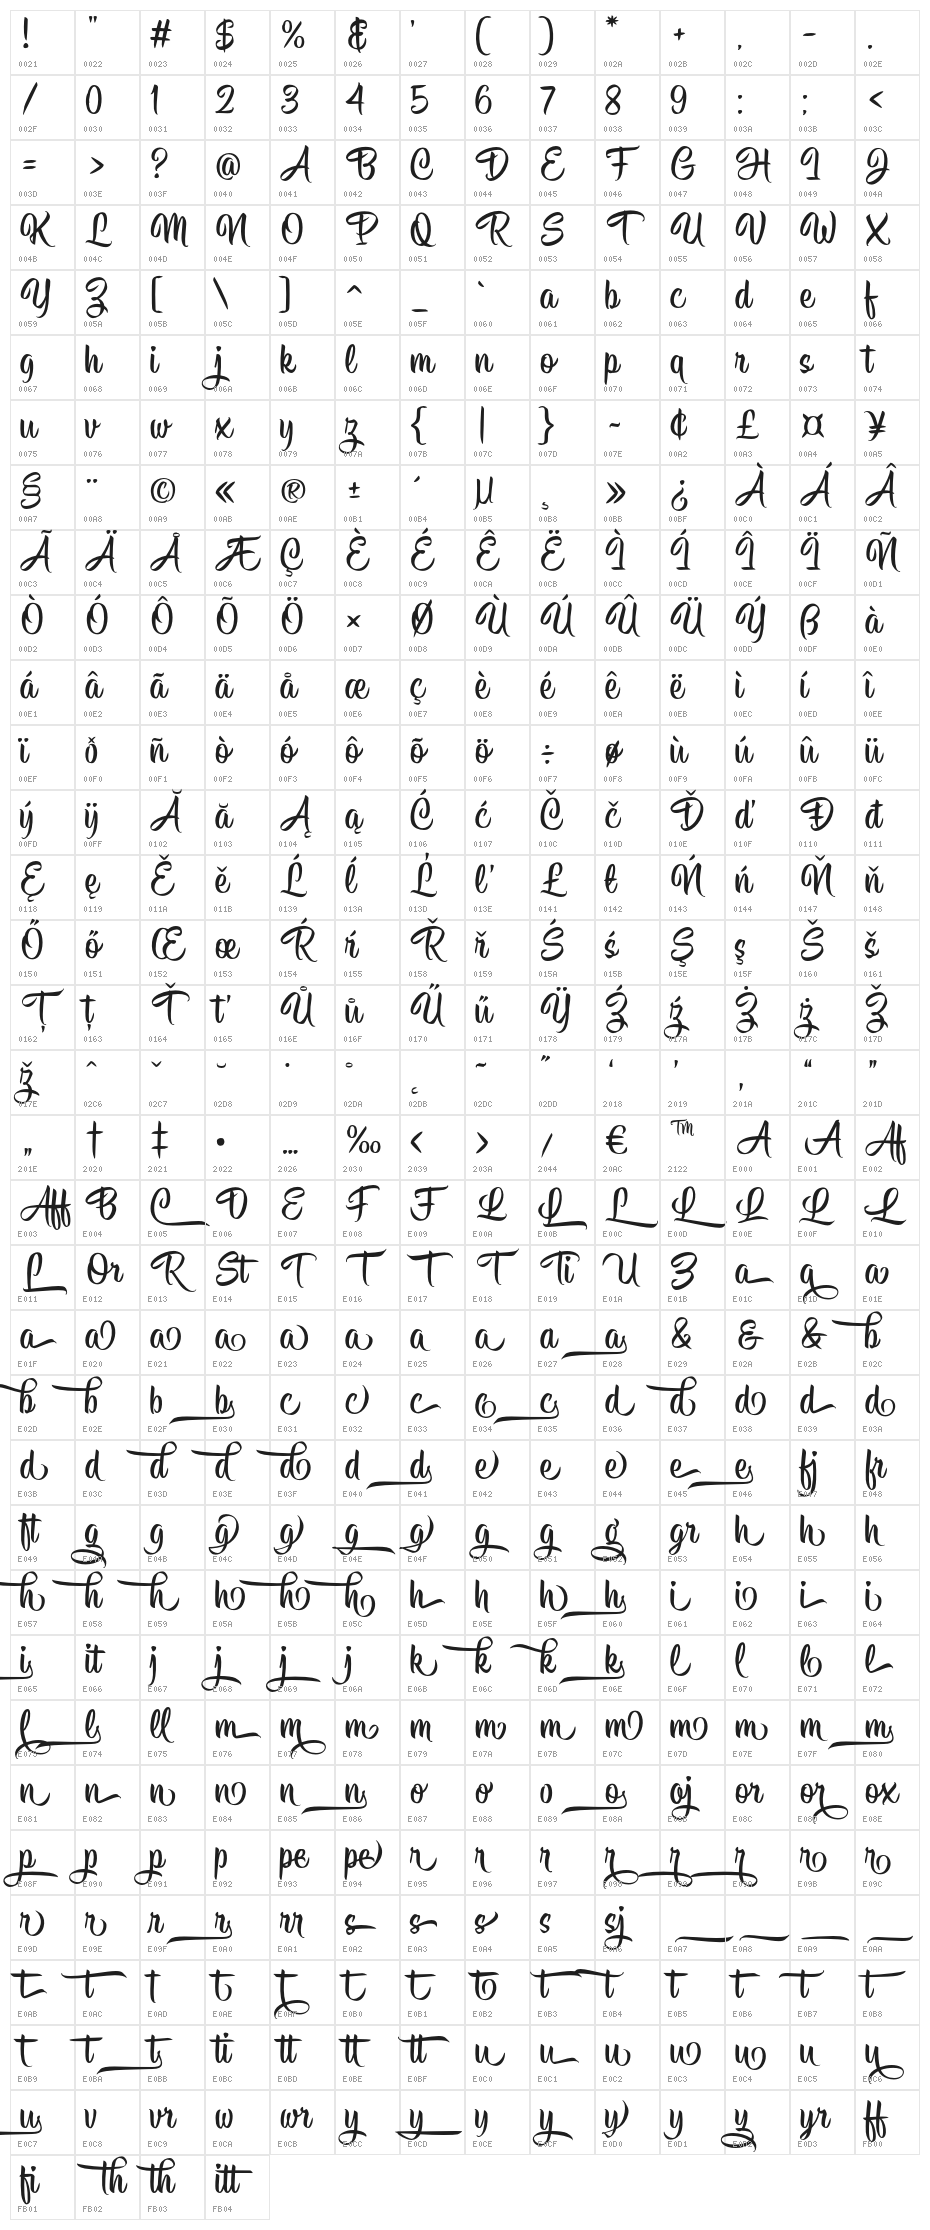 ! " # $ % & ' ( ) * + , - .
0021 0022 0023 0024 0025 0026 0027 0028 0029 002A 002B 002C 002D 002E
/ 0 1 2 3 4 5 6 7 8 9 : ; <
002F 0030 0031 0032 0033 0034 0035 0036 0037 0038 0039 003A 003B 003C
= > ? @ A B C D E F G H I J
003D 003E 003F 0040 0041 0042 0043 0044 0045 0046 0047 0048 0049 004A
K L M N O P Q R S T U V W X
004B 004C 004D 004E 004F 0050 0051 0052 0053 0054 0055 0056 0057 0058
Y Z [ \ ] ^ _ ` a b c d e f
0059 005A 005B 005C 005D 005E 005F 0060 0061 0062 0063 0064 0065 0066
g h i j k l m n o p q r s t
0067 0068 0069 006A 006B 006C 006D 006E 006F 0070 0071 0072 0073 0074
u v w x y z { | } ~ ¢ £ ¤ ¥
0075 0076 0077 0078 0079 007A 007B 007C 007D 007E 00A2 00A3 00A4 00A5
§ ¨ © « ® ± ´ µ ¸ » ¿ À Á Â
00A7 00A8 00A9 00AB 00AE 00B1 00B4 00B5 00B8 00BB 00BF 00C0 00C1 00C2
Ã Ä Å Æ Ç È É Ê Ë Ì Í Î Ï Ñ
00C3 00C4 00C5 00C6 00C7 00C8 00C9 00CA 00CB 00CC 00CD 00CE 00CF 00D1
Ò Ó Ô Õ Ö × Ø Ù Ú Û Ü Ý ß à
00D2 00D3 00D4 00D5 00D6 00D7 00D8 00D9 00DA 00DB 00DC 00DD 00DF 00E0
á â ã ä å æ ç è é ê ë ì í î
00E1 00E2 00E3 00E4 00E5 00E6 00E7 00E8 00E9 00EA 00EB 00EC 00ED 00EE
ï ð ñ ò ó ô õ ö ÷ ø ù ú û ü
00EF 00F0 00F1 00F2 00F3 00F4 00F5 00F6 00F7 00F8 00F9 00FA 00FB 00FC
ý ÿ Ă ă Ą ą Ć ć Č č Ď ď Đ đ
00FD 00FF 0102 0103 0104 0105 0106 0107 010C 010D 010E 010F 0110 0111
Ę ę Ě ě Ĺ ĺ Ľ ľ Ł ł Ń ń Ň ň
0118 0119 011A 011B 0139 013A 013D 013E 0141 0142 0143 0144 0147 0148
Ő ő Œ œ Ŕ ŕ Ř ř Ś ś Ş ş Š š
0150 0151 0152 0153 0154 0155 0158 0159 015A 015B 015E 015F 0160 0161
Ţ ţ Ť ť Ů ů Ű ű Ÿ Ź ź Ż ż Ž
0162 0163 0164 0165 016E 016F 0170 0171 0178 0179 017A 017B 017C 017D
ž ˆ ˇ ˘ ˙ ˚ ˛ ˜ ˝ ‘ ’ ‚ “ ”
017E 02C6 02C7 02D8 02D9 02DA 02DB 02DC 02DD 2018 2019 201A 201C 201D
„ † ‡ • … ‰ ‹ › ⁄ € ™ A A Af
201E 2020 2021 2022 2026 2030 2039 203A 2044 20AC 2122 E000 E001 E002
Aff B C D E F F L L L L L L L
E003 E004 E005 E006 E007 E008 E009 E00A E00B E00C E00D E00E E00F E010
L Or R St T T T T Ti U Z a a a
E011 E012 E013 E014 E015 E016 E017 E018 E019 E01A E01B E01C E01D E01E
a a a a a a a a a a & & & b
E01F E020 E021 E022 E023 E024 E025 E026 E027 E028 E029 E02A E02B E02C
b b b b c c c c c d d d d d
E02D E02E E02F E030 E031 E032 E033 E034 E035 E036 E037 E038 E039 E03A
d d d d d d d e e e e e fj fr
E03B E03C E03D E03E E03F E040 E041 E042 E043 E044 E045 E046 E047 E048
ft g g g g g g g g g gr h h h
E049 E04A E04B E04C E04D E04E E04F E050 E051 E052 E053 E054 E055 E056
h h h h h h h h h h i i i i
E057 E058 E059 E05A E05B E05C E05D E05E E05F E060 E061 E062 E063 E064
i it j j j j k k k k l l l l
E065 E066 E067 E068 E069 E06A E06B E06C E06D E06E E06F E070 E071 E072
l l ll m m m m m m m m m m m
E073 E074 E075 E076 E077 E078 E079 E07A E07B E07C E07D E07E E07F E080
n n n n n n o o o o oj or or ox
E081 E082 E083 E084 E085 E086 E087 E088 E089 E08A E08B E08C E08D E08E
p p p p pe pe r r r r r r r r
E08F E090 E091 E092 E093 E094 E095 E096 E097 E098 E099 E09A E09B E09C
r r r r rr s s s s sj
E09D E09E E09F E0A0 E0A1 E0A2 E0A3 E0A4 E0A5 E0A6 E0A7 E0A8 E0A9 E0AA
t t t t t t t t t t t t t t
E0AB E0AC E0AD E0AE E0AF E0B0 E0B1 E0B2 E0B3 E0B4 E0B5 E0B6 E0B7 E0B8
t t t ti tt tt tt u u u u u u u
E0B9 E0BA E0BB E0BC E0BD E0BE E0BF E0C0 E0C1 E0C2 E0C3 E0C4 E0C5 E0C6
u v vr w wr y y y y y y y yr ff
E0C7 E0C8 E0C9 E0CA E0CB E0CC E0CD E0CE E0CF E0D0 E0D1 E0D2 E0D3 FB00
fi th th itt
FB01 FB02 FB03 FB04